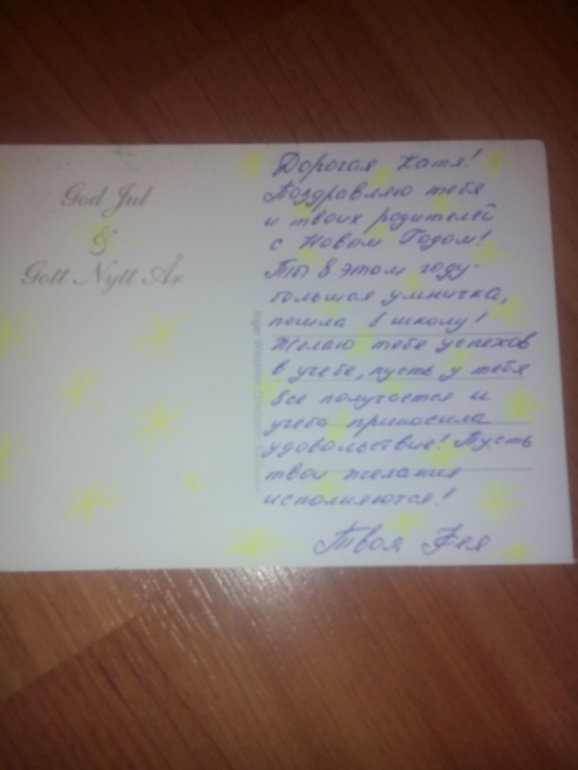 God Jul
&
Gott Nytt År
Дорогая Катя!
Поздравляю тебя
и твоих родителей
с Новым Годом!
Ты в этом году-
большая умничка,
пошла в школу!
Желаю тебе успехов
в учебе, пусть у тебя
все получается и
учеба приносила
удовольствие! Пусть
твои желания
исполняются!
Твоя Фея